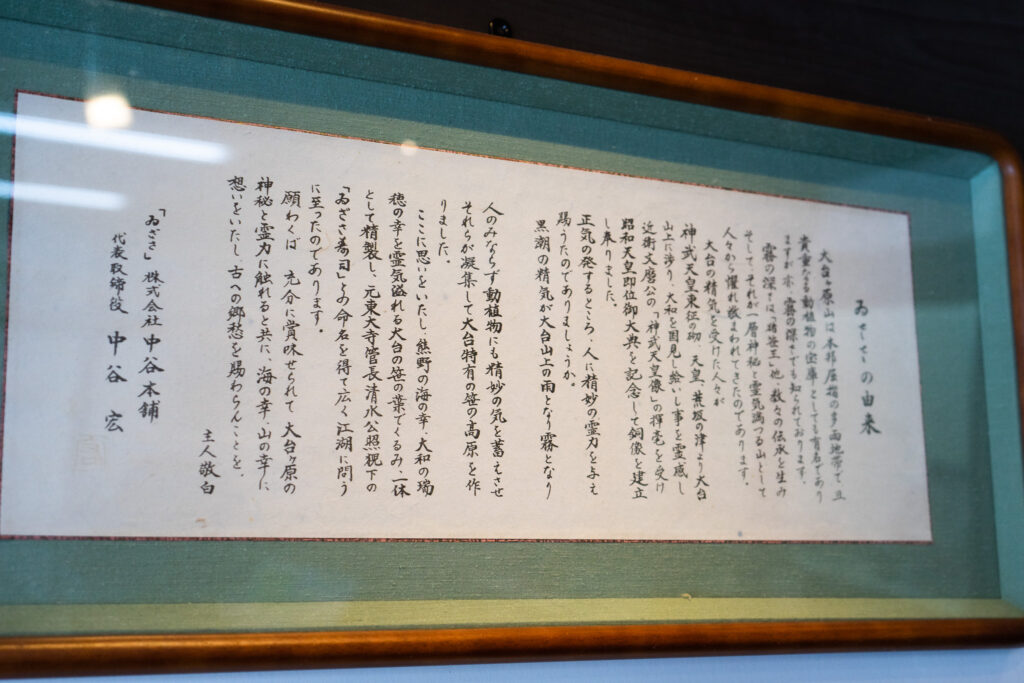 ゐざさの由来
大台ヶ原山は本邦屈指の多雨地帯で、且
貴重なる動植物の宝庫としても有名であり
ますが、亦、霧の深さでも知られております。
霧の深さは「猪笹王」他、数々の伝承を生み
そして、それが一層神秘と霊気満つる山として
人々から懼れ敬まわれてきたのであります。
大台の精気を受けた人々が
神武天皇東征の砌、天皇、荒坂の津より大台
山上に渉り、大和を国見し給いし事を霊感し
近衛文麿公の「神武天皇像」の揮毫を受け
昭和天皇即位御大典を記念して銅像を建立
し奉りました。
正気の発するところ、人に精妙の霊力を与え
賜うたのでありましょうか。
黒潮の精気が大台山上の雨となり霧となり
人のみならず動植物にも精妙の気を蓄えさせ
それらが凝集して大台特有の笹の高原を作
りました。
ここに思いをいたし、熊野の海の幸、大和の瑞
穂の幸を霊気溢れる大台の笹の葉でくるみ、一体
として精製し、元東大寺管長清水公照猊下の
「ゐざさ寿司」との命名を得て広く江湖に問う
に至ったのであります。
願わくば 充分に賞味せられて、大台ヶ原の
神秘と霊力に触れると共に、海の幸、山の幸に
想いをいたし、古への郷愁を賜わらんことを。
主人敬白
「ゐざさ」 株式会社 中谷本舗
代表取締役 中谷 宏